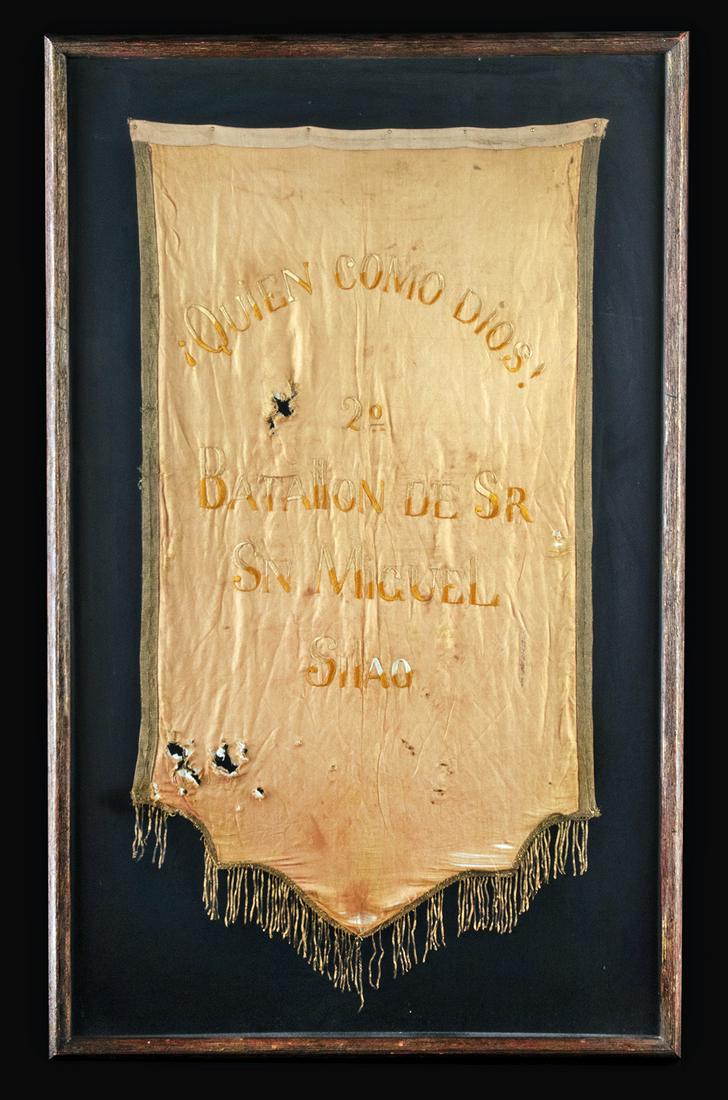 ¡QUiEN COMO DiOS!
2º
BATAllON DE SR
SN MiGUEL
SilAO